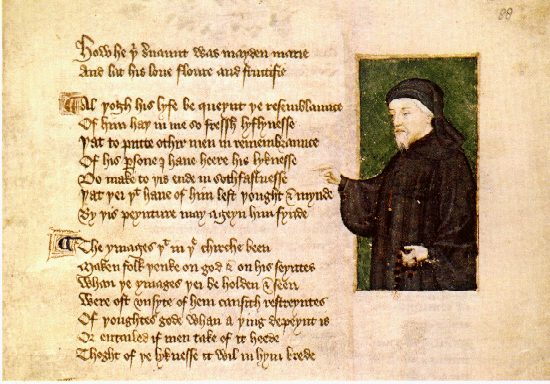 88
How he þi sruaunt was mayden marie
And lat his loue floure and fructifie
Al þogh his lyfe be queynt þe resemblaunce
Of him haþ in me so fressh lyflynesse
Þat to putte othir men in remembraunce
Of his psone I haue heere his lyknesse
Do make to þis ende in sothfastnesse
Þat þei þt haue of him left þought & mynde
By þis peynture may ageyn him fynde
The ymages þt in þe chirche been
Maken folk þenke on god & on his seyntes
Whan þe ymages þei be holden & seen
Were oft vnsyte of hem causith restreyntes
Of þoughtes gode whan a þing depeynt is
Or entailed if men take of it heede
Thoght of þe lyknesse it wil in hym brede